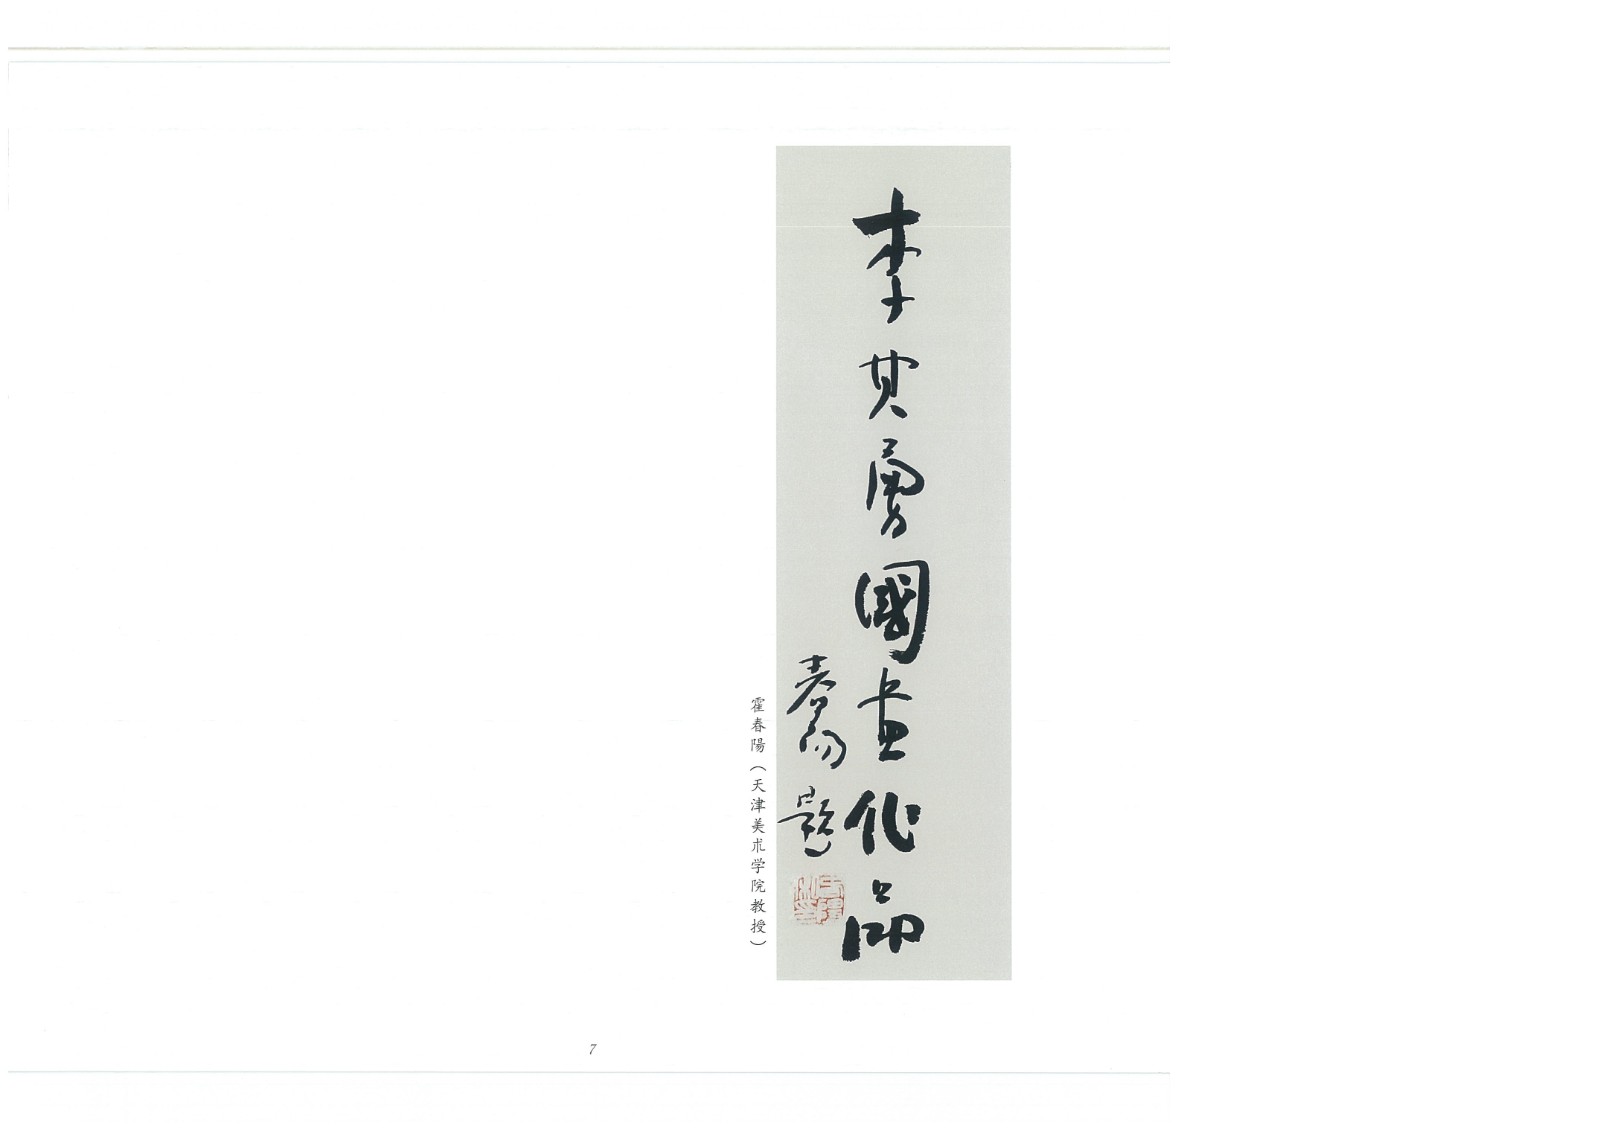 李其勇國画作品
春陽題
霍春陽（天津美术学院教授）
7